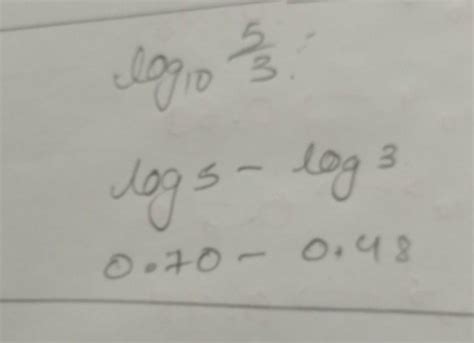 log₁₀ 5/3
log 5 - log 3
0.70 - 0.48